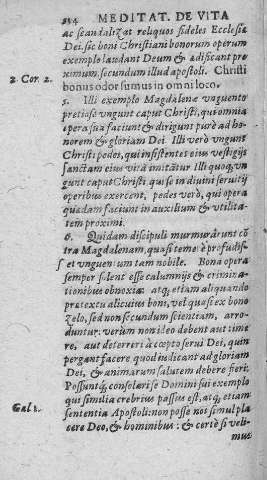 314 MEDITAT. DE VITA
ac scandalizat reliquos fideles Ecclesiæ
Dei. sic bons Christiani bonorum operum
exemplo laudant Deum & ædificant pro
ximum. secundum illud apostoli. Christi
2. Cor. 2.
bonus odor sumus in omni loco.
5. Illi exemplo Magdalenæ vnguento
pretioso vngunt caput Christi, qui omnia
opera sua faciunt & dirigunt purè ad ho
norem & gloriam Dei. Illi verò vngunt
Christi pedes, qui insistentes eius vestigijs
sanctam eius vitã imitãtur. Illi quoq; vn
gunt caput Christi. qui se in diuini seruitij
operibus exercent, pedes verò, qui opera
quædam faciunt in auxilium & vtilita
tem proximi.
6. Quidam discipuli murmurãrunt cõ
tra Magdalenam, quasi temerè profudis
set vnguentum tam nobile. Bona opera
semper solent esse calumnijs & crimina
tionibus obnoxia: atq; etiam aliquando
prætextu alicuius boni, vel quasi ex bono
zelo, sed non secundum scientiam, arro
duntur: verum non ideo debent aut time
re, aut deterreri à cœpto serui Dei, quin
pergant facere quod iudicant ad gloriam
Dei, & animarum salutem debere fieri.
Possuntq; consolari se Domini sui exemplo
qui similia crebrius passus est, atq; etiam
Gal. 1.
sententia Apostoli: non posse nos simul pla
cere Deo, & hominibus: & certè si veli
mus